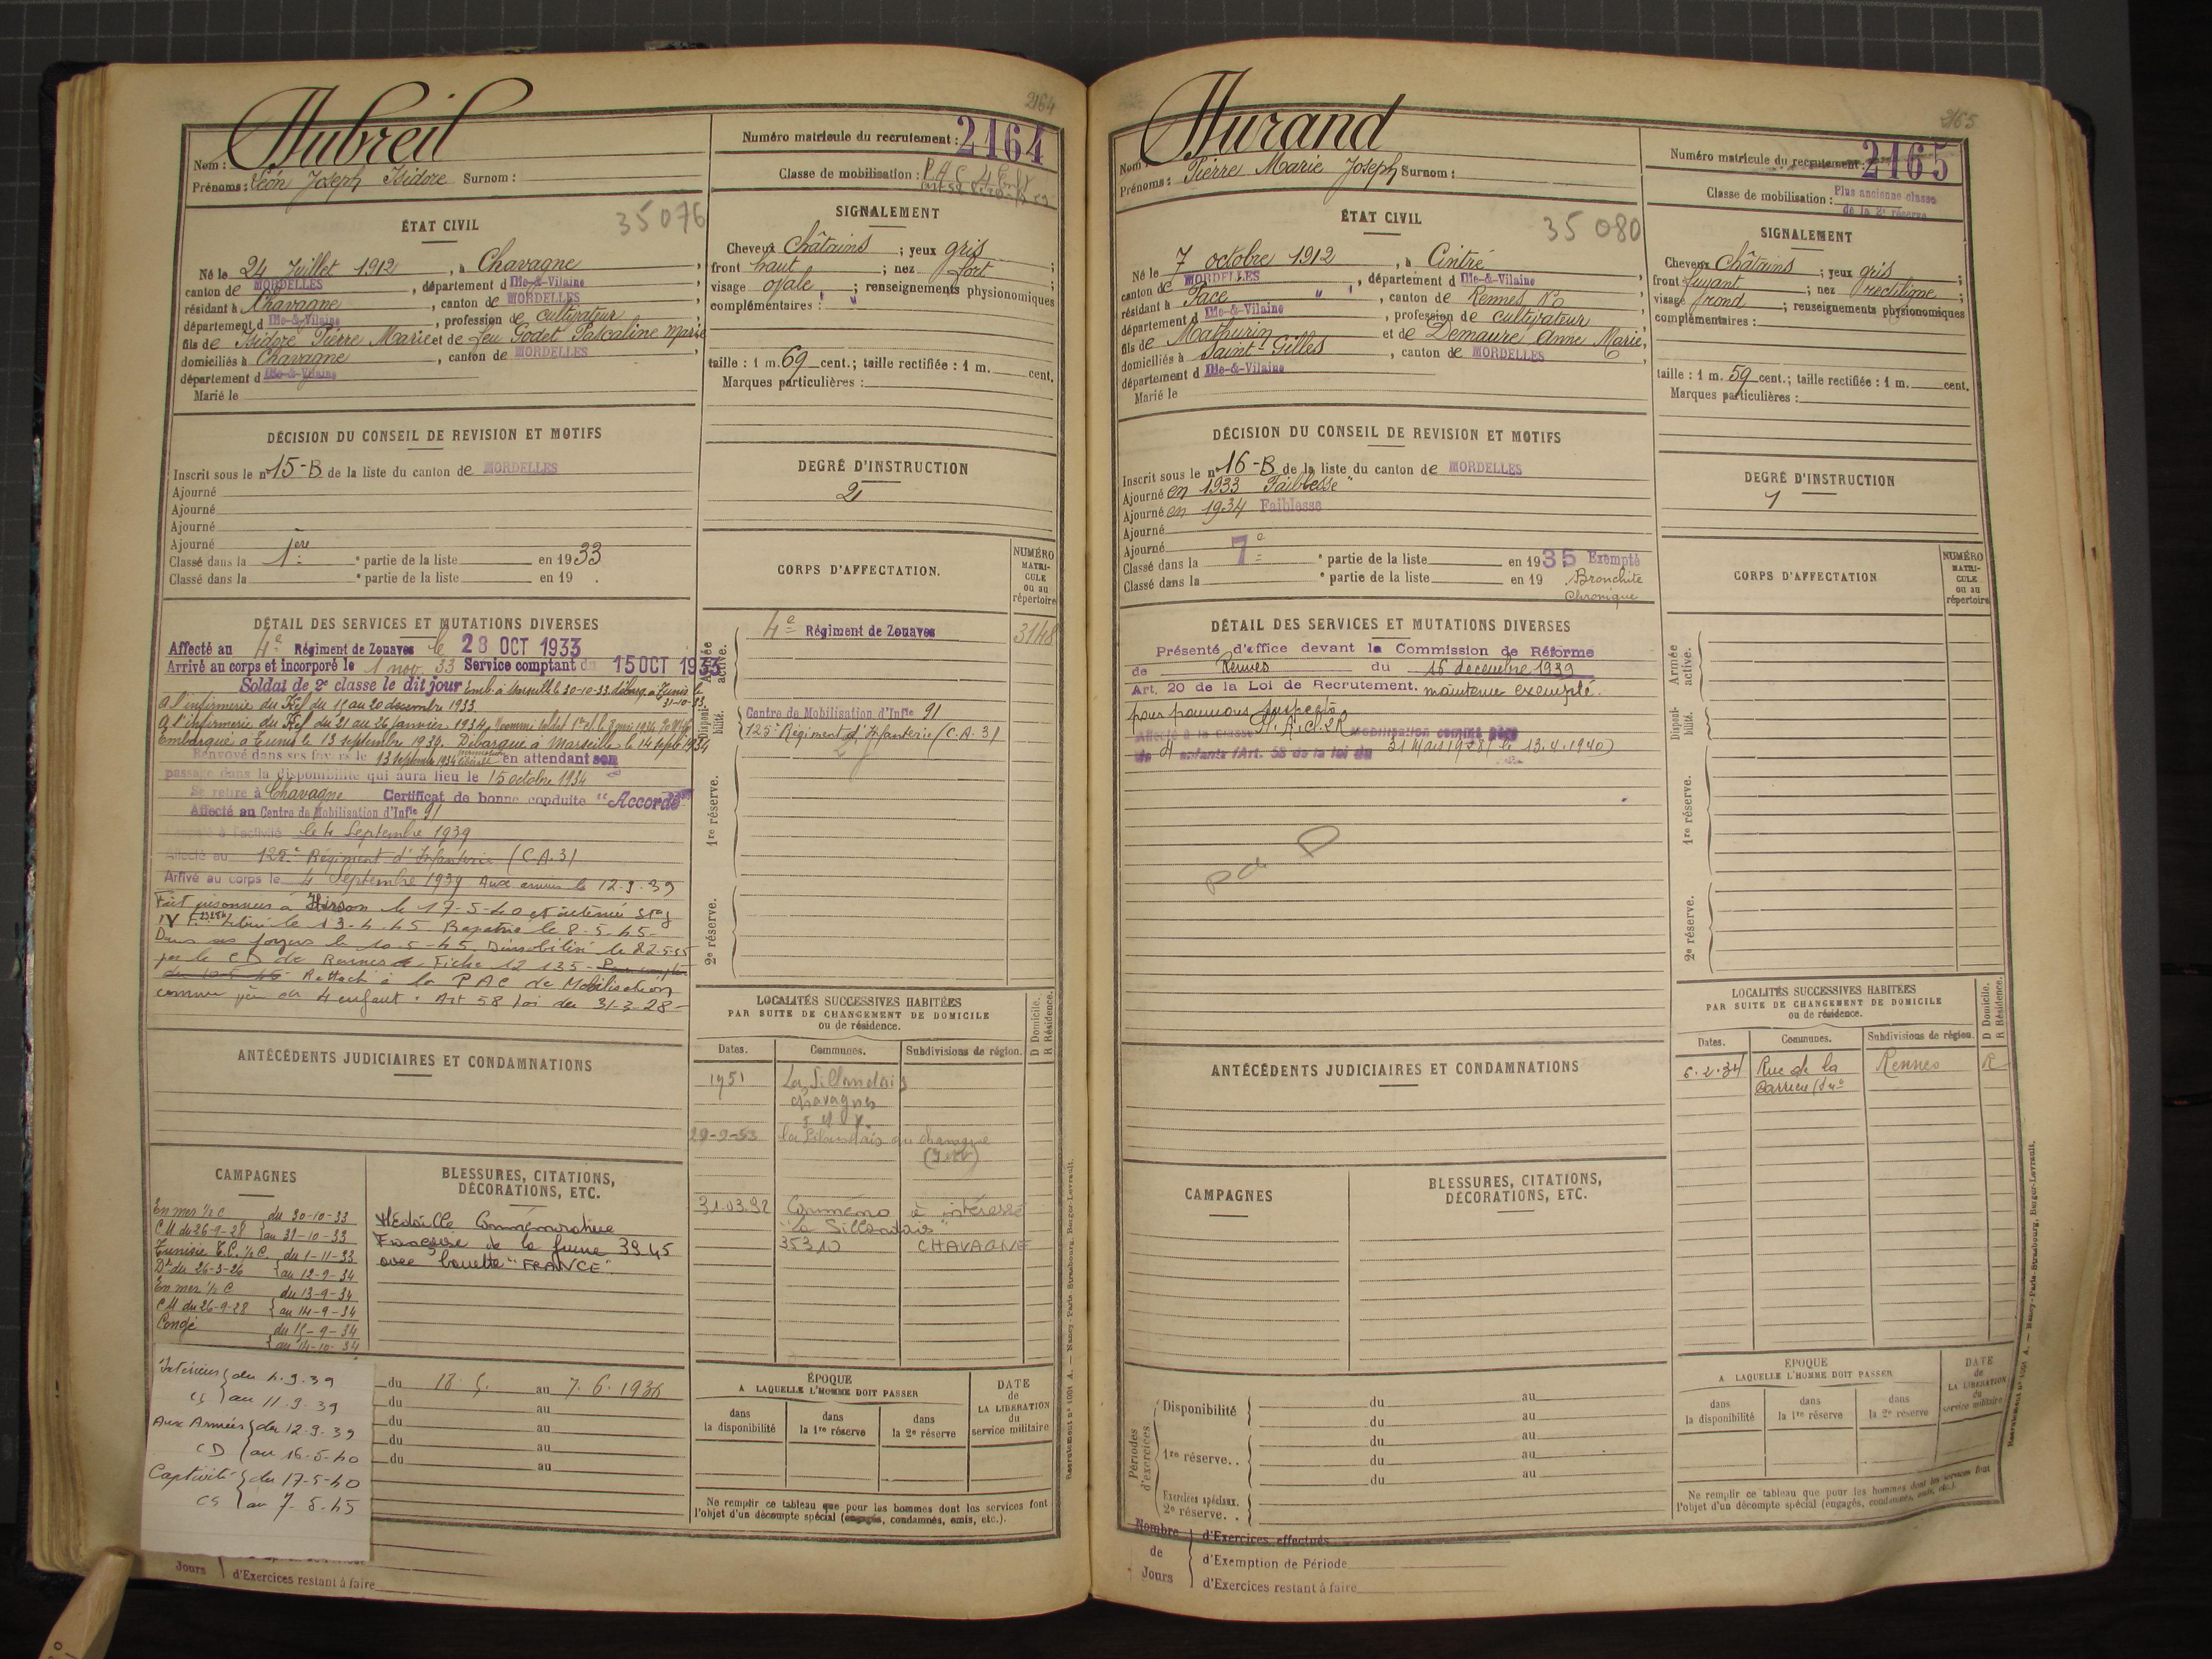 2164
Nom : Dubreil
Prénoms : Léon Joseph Isidore Surnom :
Numéro matricule du recrutement : 2164
Classe de mobilisation : P.A.C. 4 Enft
ÉTAT CIVIL
35076
Né le 24 Juillet 1912, à Chavagne,
canton de MORDELLES, département d Ille-&-Vilaine,
résidant à Chavagne, canton de MORDELLES,
département d Ille-&-Vilaine, profession de cultivateur
fils de Isidore Pierre Marie et de feu Godet Pascaline Marie
domiciliés à Chavagne, canton de MORDELLES,
département d Ille-&-Vilaine
Marié le
SIGNALEMENT
Cheveux Châtains ; yeux gris ;
front haut ; nez fort ;
visage ovale ; renseignements physionomiques
complémentaires : " "
taille : 1 m. 69 cent.; taille rectifiée : 1 m. cent.
Marques particulières :
DÉCISION DU CONSEIL DE REVISION ET MOTIFS
Inscrit sous le n° 15-B de la liste du canton de MORDELLES
Ajourné
Ajourné
Ajourné
Ajourné
Classé dans la 1ère e partie de la liste en 1933
Classé dans la e partie de la liste en 19 .
DEGRÉ D'INSTRUCTION
2
DÉTAIL DES SERVICES ET MUTATIONS DIVERSES
Affecté au 4e Régiment de Zouaves le 28 OCT 1933
Arrivé au corps et incorporé le 1 nov. 33 Service comptant du 15 OCT 1933
Soldat de 2e classe le dit jour Emb. à Marseille le 30-10-33. débarq. à Tunis le
31-10-33.
A l'infirmerie du Kef du 11 au 20 décembre 1933.
A l'infirmerie du Kef du 21 au 26 Janvier 1934. Nommé soldat 1re cl. le
Embarqué à Tunis le 13 septembre 1934. Débarqué à Marseille le 14 septbre 1934
Renvoyé dans ses foyers le 13 septembre 1934 en attendant son
passage dans la disponibilité qui aura lieu le 15 octobre 1934
Se retire à Chavagne Certificat de bonne conduite "Accordé"
Affecté au Centre de Mobilisation d'Infie 91
Rappelé à l'activité le 4 Septembre 1939
Affecté au 125e Régiment d'Infanterie (C.A.3)
Arrivé au corps le 4 Septembre 1939 Aux armées le 12.9.39
Fait prisonnier à Hirson le 17-5-40 et interné Stag
IV F. Libéré le 13-4-45 Rapatrié le 8-5-45-
Dans ses foyers le 10-5-45. Démobilisé le 22-5-45
par le CD de Rennes Fiche 12 135 - Pour compter
du 10-5-45- Rattaché à la PAC de Mobilisation
comme père de 4 enfant. Art 58 loi du 31-3-28-
CORPS D'AFFECTATION.
NUMÉRO MATRICULE ou au répertoire
Armée active.
4e Régiment de Zouaves 3148
Disponibilité.
Centre de Mobilisation d'Infie 91
125e Régiment d'Infanterie (C.A.3)
1re réserve.
2e réserve.
ANTÉCÉDENTS JUDICIAIRES ET CONDAMNATIONS
LOCALITÉS SUCCESSIVES HABITÉES
PAR SUITE DE CHANGEMENT DE DOMICILE
ou de résidence.
D Domicile.
R Résidence.
Dates. Communes. Subdivisions de région.
1951 La Sillandais
Chavagne
I et V.
29-9-53 la Sillandais en Chavagne
(I et V)
31.03.92 Commémo à intéressé
"La Sillandais"
35310 CHAVAGNE
CAMPAGNES
En mer ½ C du 30-10-33
CM du 26-9-28 au 31-10-33
Tunisie T.C. ½ C. du 1-11-33
Dt du 26-3-26 au 12-9-34
En mer ½ C du 13-9-34
CM du 26-9-28 au 14-9-34
Congé du 15-9-34
au 14-10-34
Intérieur du 4.9.39
CS au 11.9.39
Aux Armées du 12.9.39
CD au 16-5-40
Captivité du 17-5-40
CS au 7-5-45
BLESSURES, CITATIONS,
DÉCORATIONS, ETC.
Médaille Commémorative
Française de la guerre 39 45
avec barrette "FRANCE"
du 18.5. au 7.6.1936
du au
du au
du au
du au
ÉPOQUE
A LAQUELLE L'HOMME DOIT PASSER
dans la disponibilité
dans la 1re réserve
dans la 2e réserve
DATE de LA LIBÉRATION du service militaire
Ne remplir ce tableau que pour les hommes dont les services font
l'objet d'un décompte spécial (engagés, condamnés, omis, etc.).
Jours d'Exercices restant à faire
Recrutement n° 1051 A. — Nancy-Paris-Strasbourg, Berger-Levrault.
2165
Nom : Durand
Prénoms : Pierre Marie Joseph Surnom :
Numéro matricule du recrutement : 2165
Classe de mobilisation : Plus ancienne classe
de la 2e réserve
ÉTAT CIVIL
35 080
Né le 7 octobre 1912, à Cintré,
canton de MORDELLES, département d Ille-&-Vilaine,
résidant à Pacé " ", canton de Rennes No
département d Ille-&-Vilaine, profession de cultivateur
fils de Mathurin et de Demaure Anne Marie,
domiciliés à Saint-Gilles, canton de MORDELLES,
département d Ille-&-Vilaine
Marié le
SIGNALEMENT
Cheveux Châtains ; yeux gris ;
front fuyant ; nez rectiligne ;
visage rond ; renseignements physionomiques
complémentaires :
taille : 1 m. 59 cent.; taille rectifiée : 1 m. cent.
Marques particulières :
DÉCISION DU CONSEIL DE REVISION ET MOTIFS
Inscrit sous le n° 16-B de la liste du canton de MORDELLES
Ajourné en 1933 "Faiblesse"
Ajourné en 1934 Faiblesse
Ajourné
Ajourné
Classé dans la 7e e partie de la liste en 1935 Exempté
Classé dans la e partie de la liste en 19 . Bronchite
Chronique
DEGRÉ D'INSTRUCTION
1
DÉTAIL DES SERVICES ET MUTATIONS DIVERSES
Présenté d'office devant la Commission de Réforme
de Rennes du 16 décembre 1939
Art. 20 de la Loi de Recrutement. maintenu exempté.
pour poumons suspects
Affecté à la classe P.A.C.2R mobilisation comme père
de 4 enfants (Art. 58 de la loi du 31 Mars 1928) (le 13.4.1940)
pd D
CORPS D'AFFECTATION
NUMÉRO MATRICULE ou au répertoire
Armée active.
Disponibilité.
1re réserve.
2e réserve.
ANTÉCÉDENTS JUDICIAIRES ET CONDAMNATIONS
LOCALITÉS SUCCESSIVES HABITÉES
PAR SUITE DE CHANGEMENT DE DOMICILE
ou de résidence.
D Domicile.
R Résidence.
Dates. Communes. Subdivisions de région.
6.2.34 Rue de la Rennes R
CAMPAGNES
BLESSURES, CITATIONS,
DÉCORATIONS, ETC.
Périodes d'exercices
Disponibilité du au
du au
1re réserve.. du au
du au
du au
Exercices spéciaux.
2e réserve..
ÉPOQUE
A LAQUELLE L'HOMME DOIT PASSER
dans la disponibilité
dans la 1re réserve
dans la 2e réserve
DATE de LA LIBÉRATION du service militaire
Ne remplir ce tableau que pour les hommes dont les services font
l'objet d'un décompte spécial (engagés, condamnés, omis, etc.).
Nombre de Jours
d'Exercices effectués
d'Exemption de Période
d'Exercices restant à faire
Recrutement n° 1051 A. — Nancy-Paris-Strasbourg, Berger-Levrault.